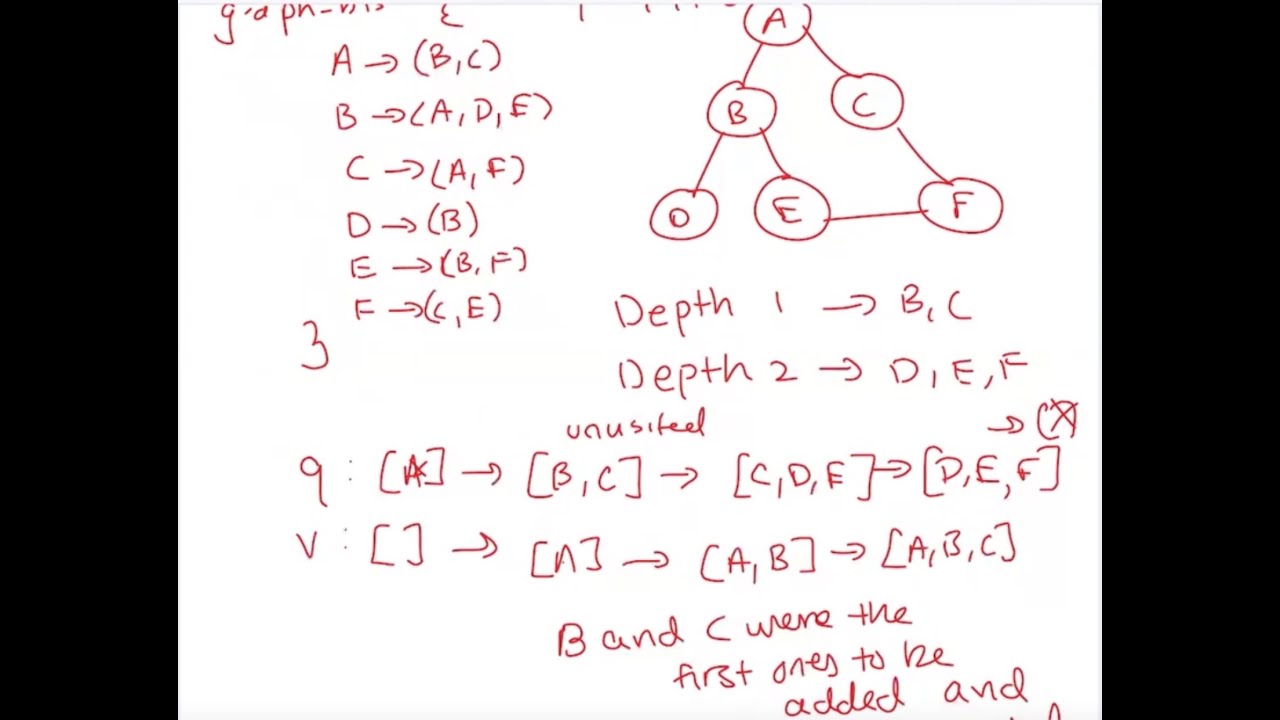 A → (B, C)
B → (A, D, E)
C → (A, F)
D → (B)
E → (B, F)
F → (C, E)
}
A
B
C
D
E
F
Depth 1 → B, C
Depth 2 → D, E, F
unvisited
q : [A] → [B, C] → [C, D, E] → [D, E, F]
v : [ ] → [A] → [A, B] → [A, B, C]
B and C were the
first ones to be
added and